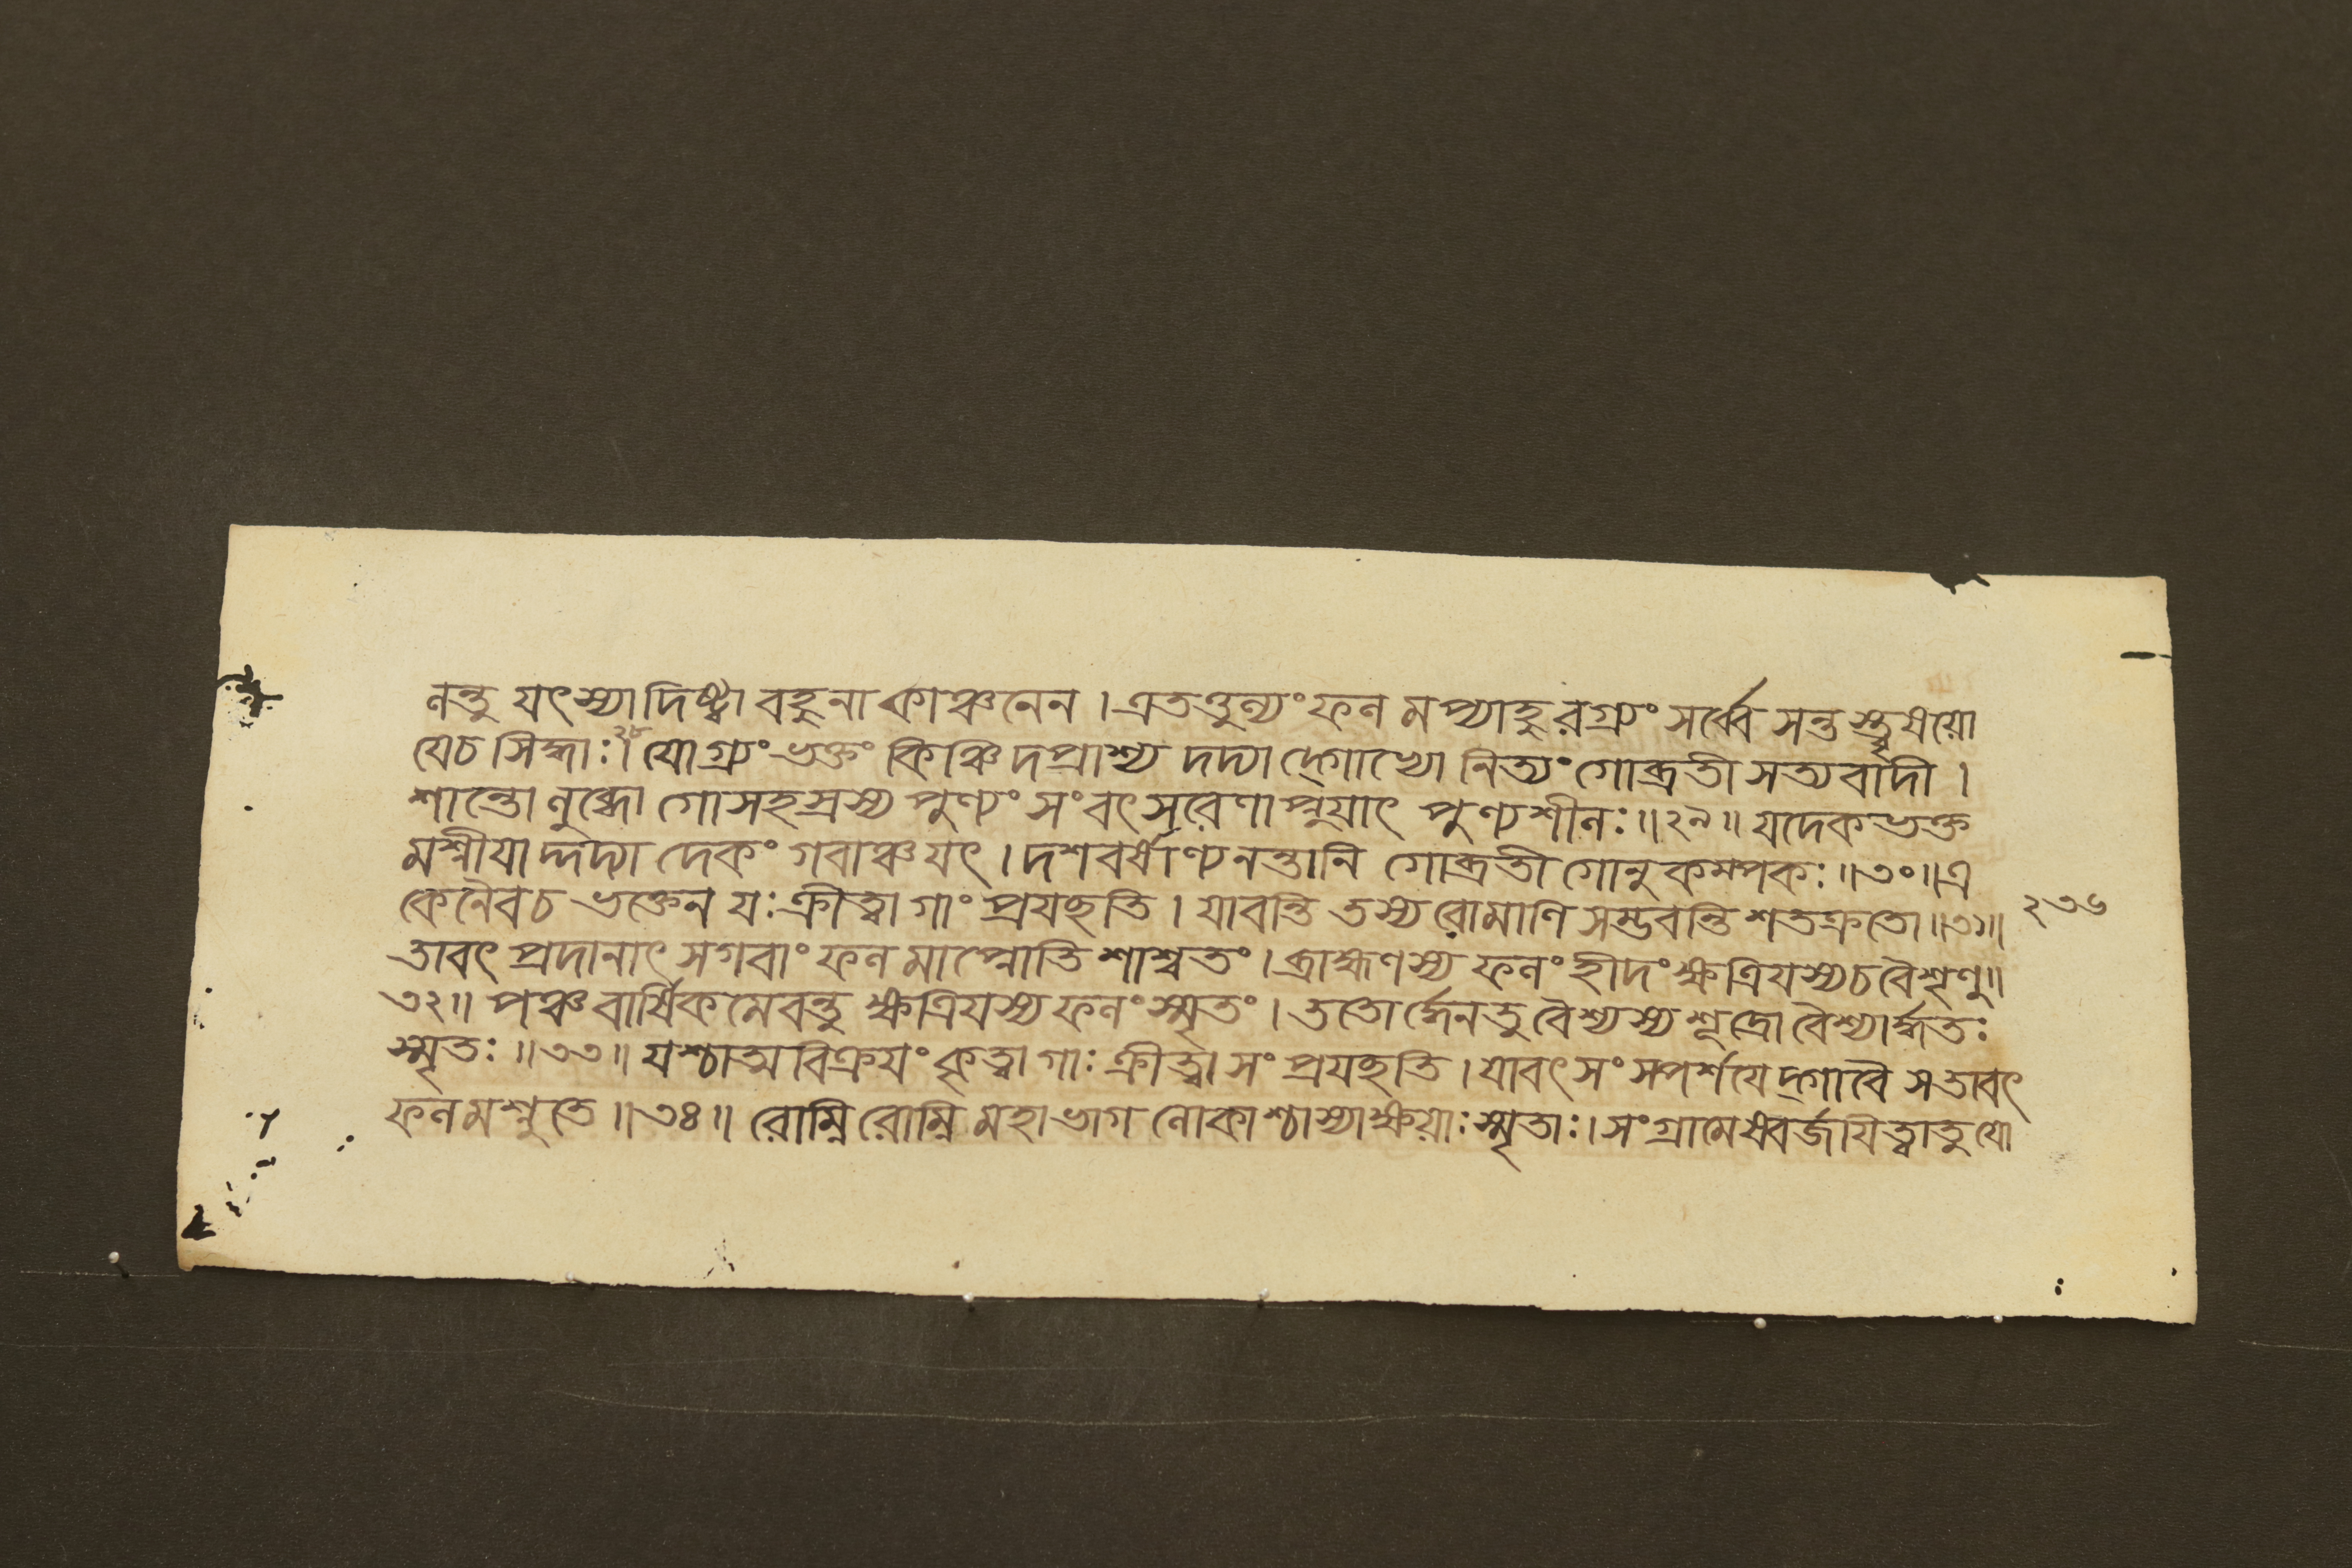 লন্তু যৎস্যাদিষ্ট্বা বহুনা কাঞ্চনেন । এতত্তুল্যং ফল মপ্যাহুরগ্র্যং সর্ব্বে সন্তস্ত্বৃষয়ো
যেচ সিদ্ধাঃ।২৮ যোগ্র্যং ভক্তং কিঞ্চিদপ্রাশ্য দদ্যাদ্গোভ্যো নিত্যং গোব্রতী সত্যবাদী ।
শান্তো লুব্ধো গোসহস্রস্য পুণ্যং সংবৎসরেণাপ্নুয়াৎ পুণ্যশীলঃ॥২৯॥ যদেকভক্ত
মশ্নীযাদ্দদ্যাদেকং গবাঞ্চ যৎ । দশবর্ষাণ্যনন্তানি গোব্রতী গোনুকম্পকঃ॥৩০॥এ
কেনৈবচ ভক্তেন যঃ ক্রীত্বা গাং প্রযচ্ছতি । যাবন্তি তস্য রোমাণি সম্ভবন্তি শতক্রতো॥৩১॥
তাবৎ প্রদানাৎ সগবাং ফল মাপ্নোতি শাশ্বতং । ব্রাহ্মণস্য ফলং হীদং ক্ষত্রিযস্যচবৈশৃণু॥
৩২॥ পঞ্চবার্ষিকমেবন্তু ক্ষত্রিযস্য ফলং স্মৃতং । ততোর্দ্ধেনতু বৈশ্যস্য শূদ্রো বৈশ্যার্দ্ধতঃ
স্মৃতঃ ॥৩৩॥ যশ্চাত্মবিক্রযং কৃত্বা গাঃ ক্রীত্বা সংপ্রযচ্ছতি । যাবৎ সংস্পর্শযেদ্গাবৈ সতাবৎ
ফলমশ্নুতে ॥৩৪॥ রোম্নি রোম্নি মহাভাগ লোকাশ্চাস্যাক্ষয়াঃ স্মৃতাঃ। সংগ্রামেষ্বর্জযিত্বাতু যো
২৩৬